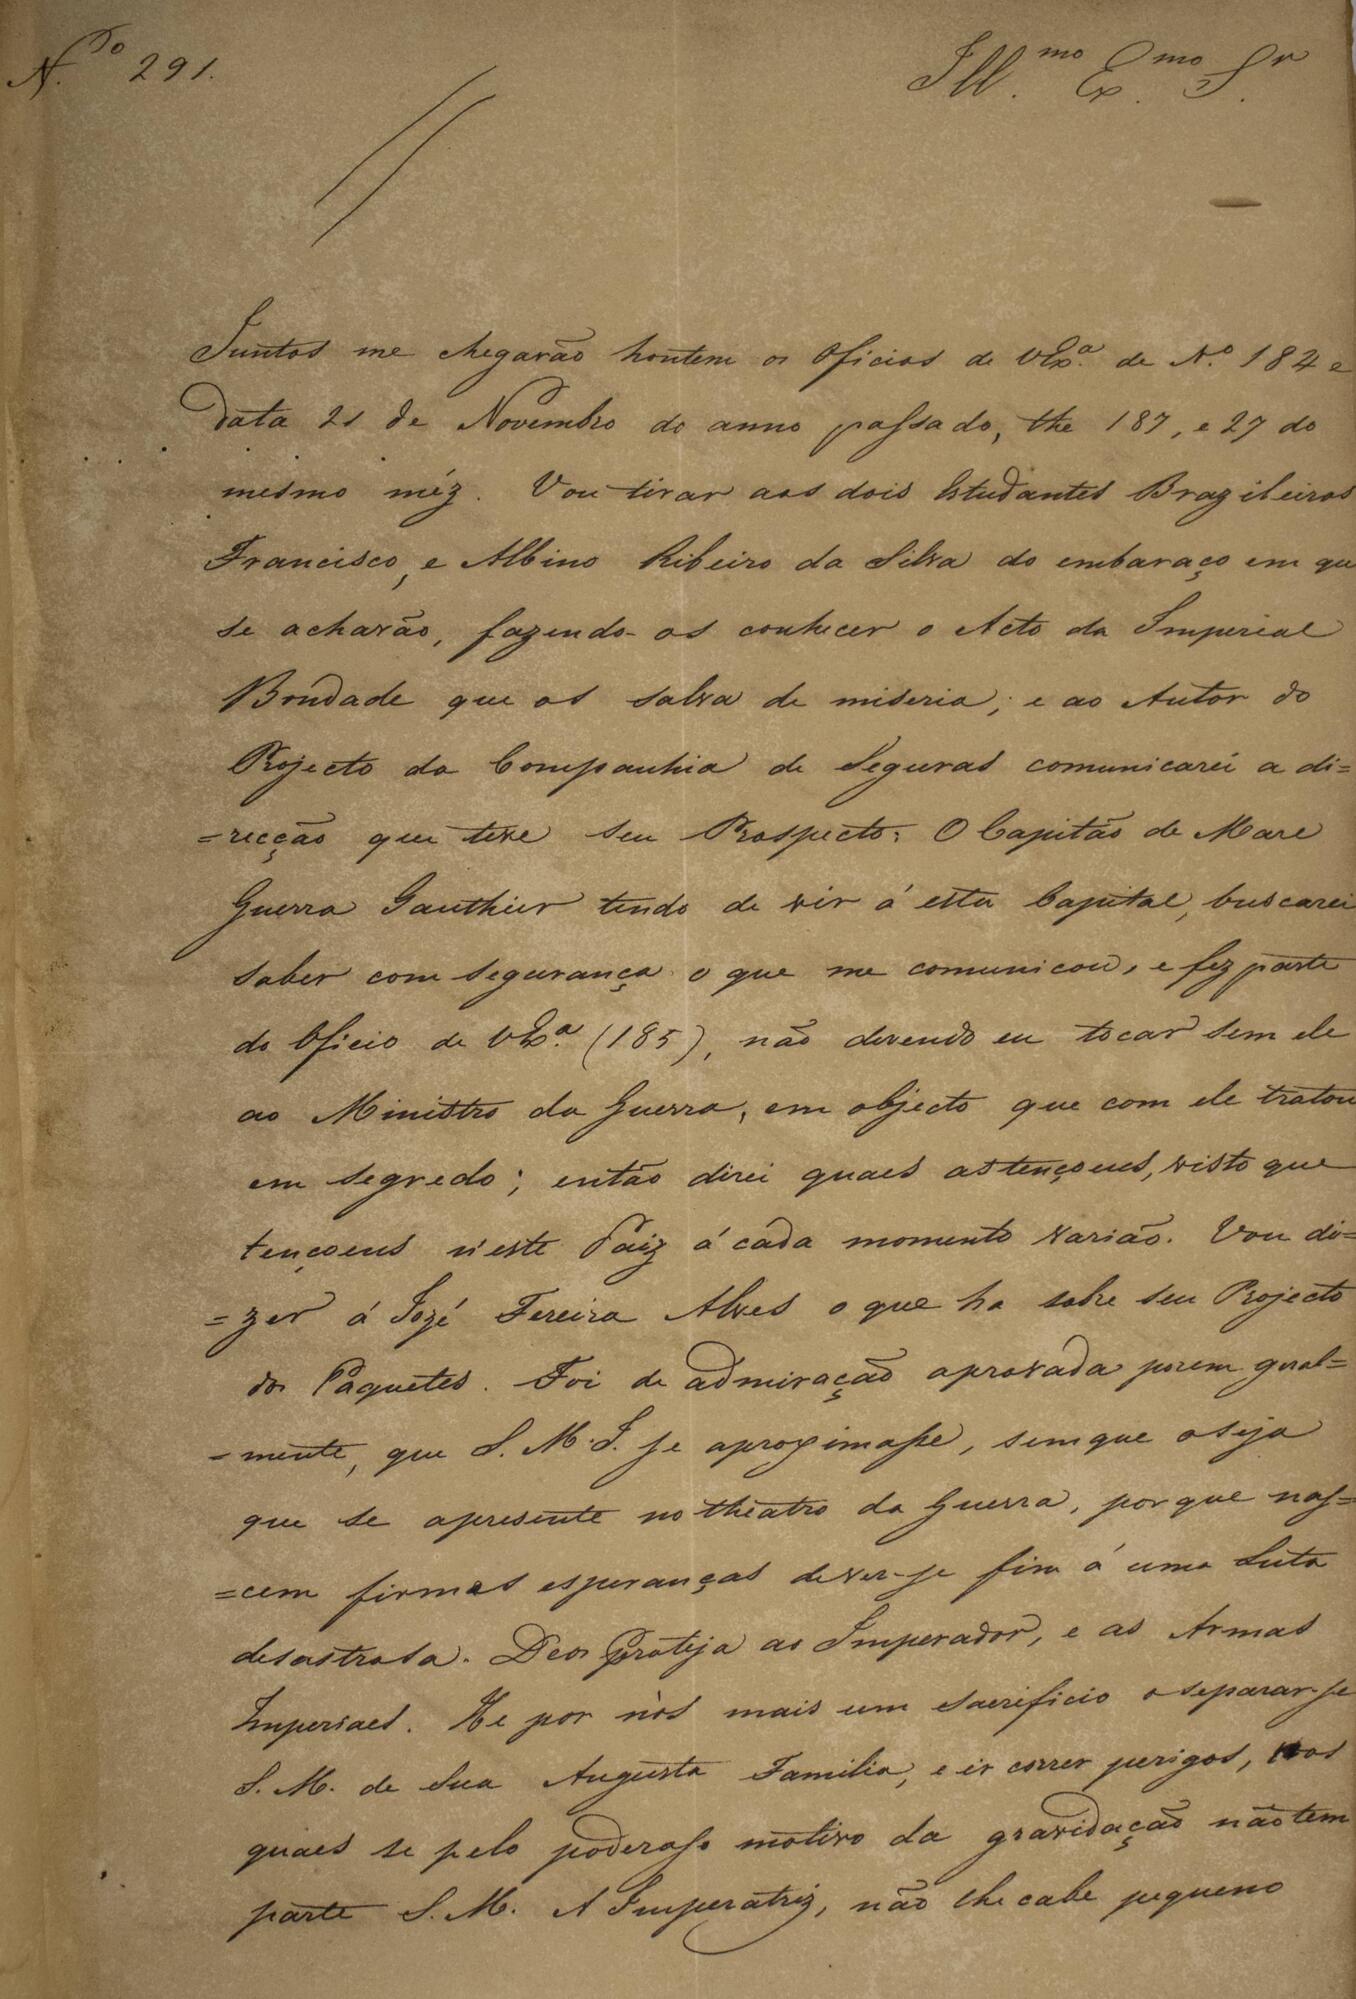 N.º 291.
Ill.mo Ex.mo Sr.
Juntos me chegarão hontem os Oficios de VEx.ª de N.º 184 e
data 21 de Novembro do anno passado, the 187, e 27 do
mesmo méz. Vou tirar aos dois Estudantes Brazileiros
Francisco, e Albino Ribeiro da Silva do embaraço em que
se acharão, fazendo-os conhecer o Acto da Imperial
Bondade que os salva de miseria; e ao Autor do
Projecto da Companhia de Seguros comunicarei a di=
=recção que teve seu Prospecto: O Capitão de Mar e
Guerra Gauthier tendo de vir á esta Capital, buscarei
saber com segurança o que me comunicou, e fez parte
do Oficio de VEx.ª (185), não devendo eu tocar sem ele
ao Ministro da Guerra, em objecto que com ele tratou
em segredo; então direi quaes as tençoens, visto que
tençoens n'este Paiz á cada momento varião. Vou di=
=zer á Jozé Fereira Alves o que ha sobre seu Projecto
dos Paquetes. Foi de admiração aprovada porem geral=
=mente, que S. M. I. se aproximasse, sem que o seja
que se apresente no theatro da Guerra, porque nas=
=cem firmes esperanças de ver-se fim á uma Luta
desastrosa. Deos Proteja ao Imperador, e as Armas
Imperiaes. He por nós mais um sacrificio o separar-se
S. M. de Sua Augusta Familia, e ir correr perigos, nos
quaes se pelo poderoso motivo da gravidação não tem
parte S. M. A Imperatriz, não lhe cabe pequeno